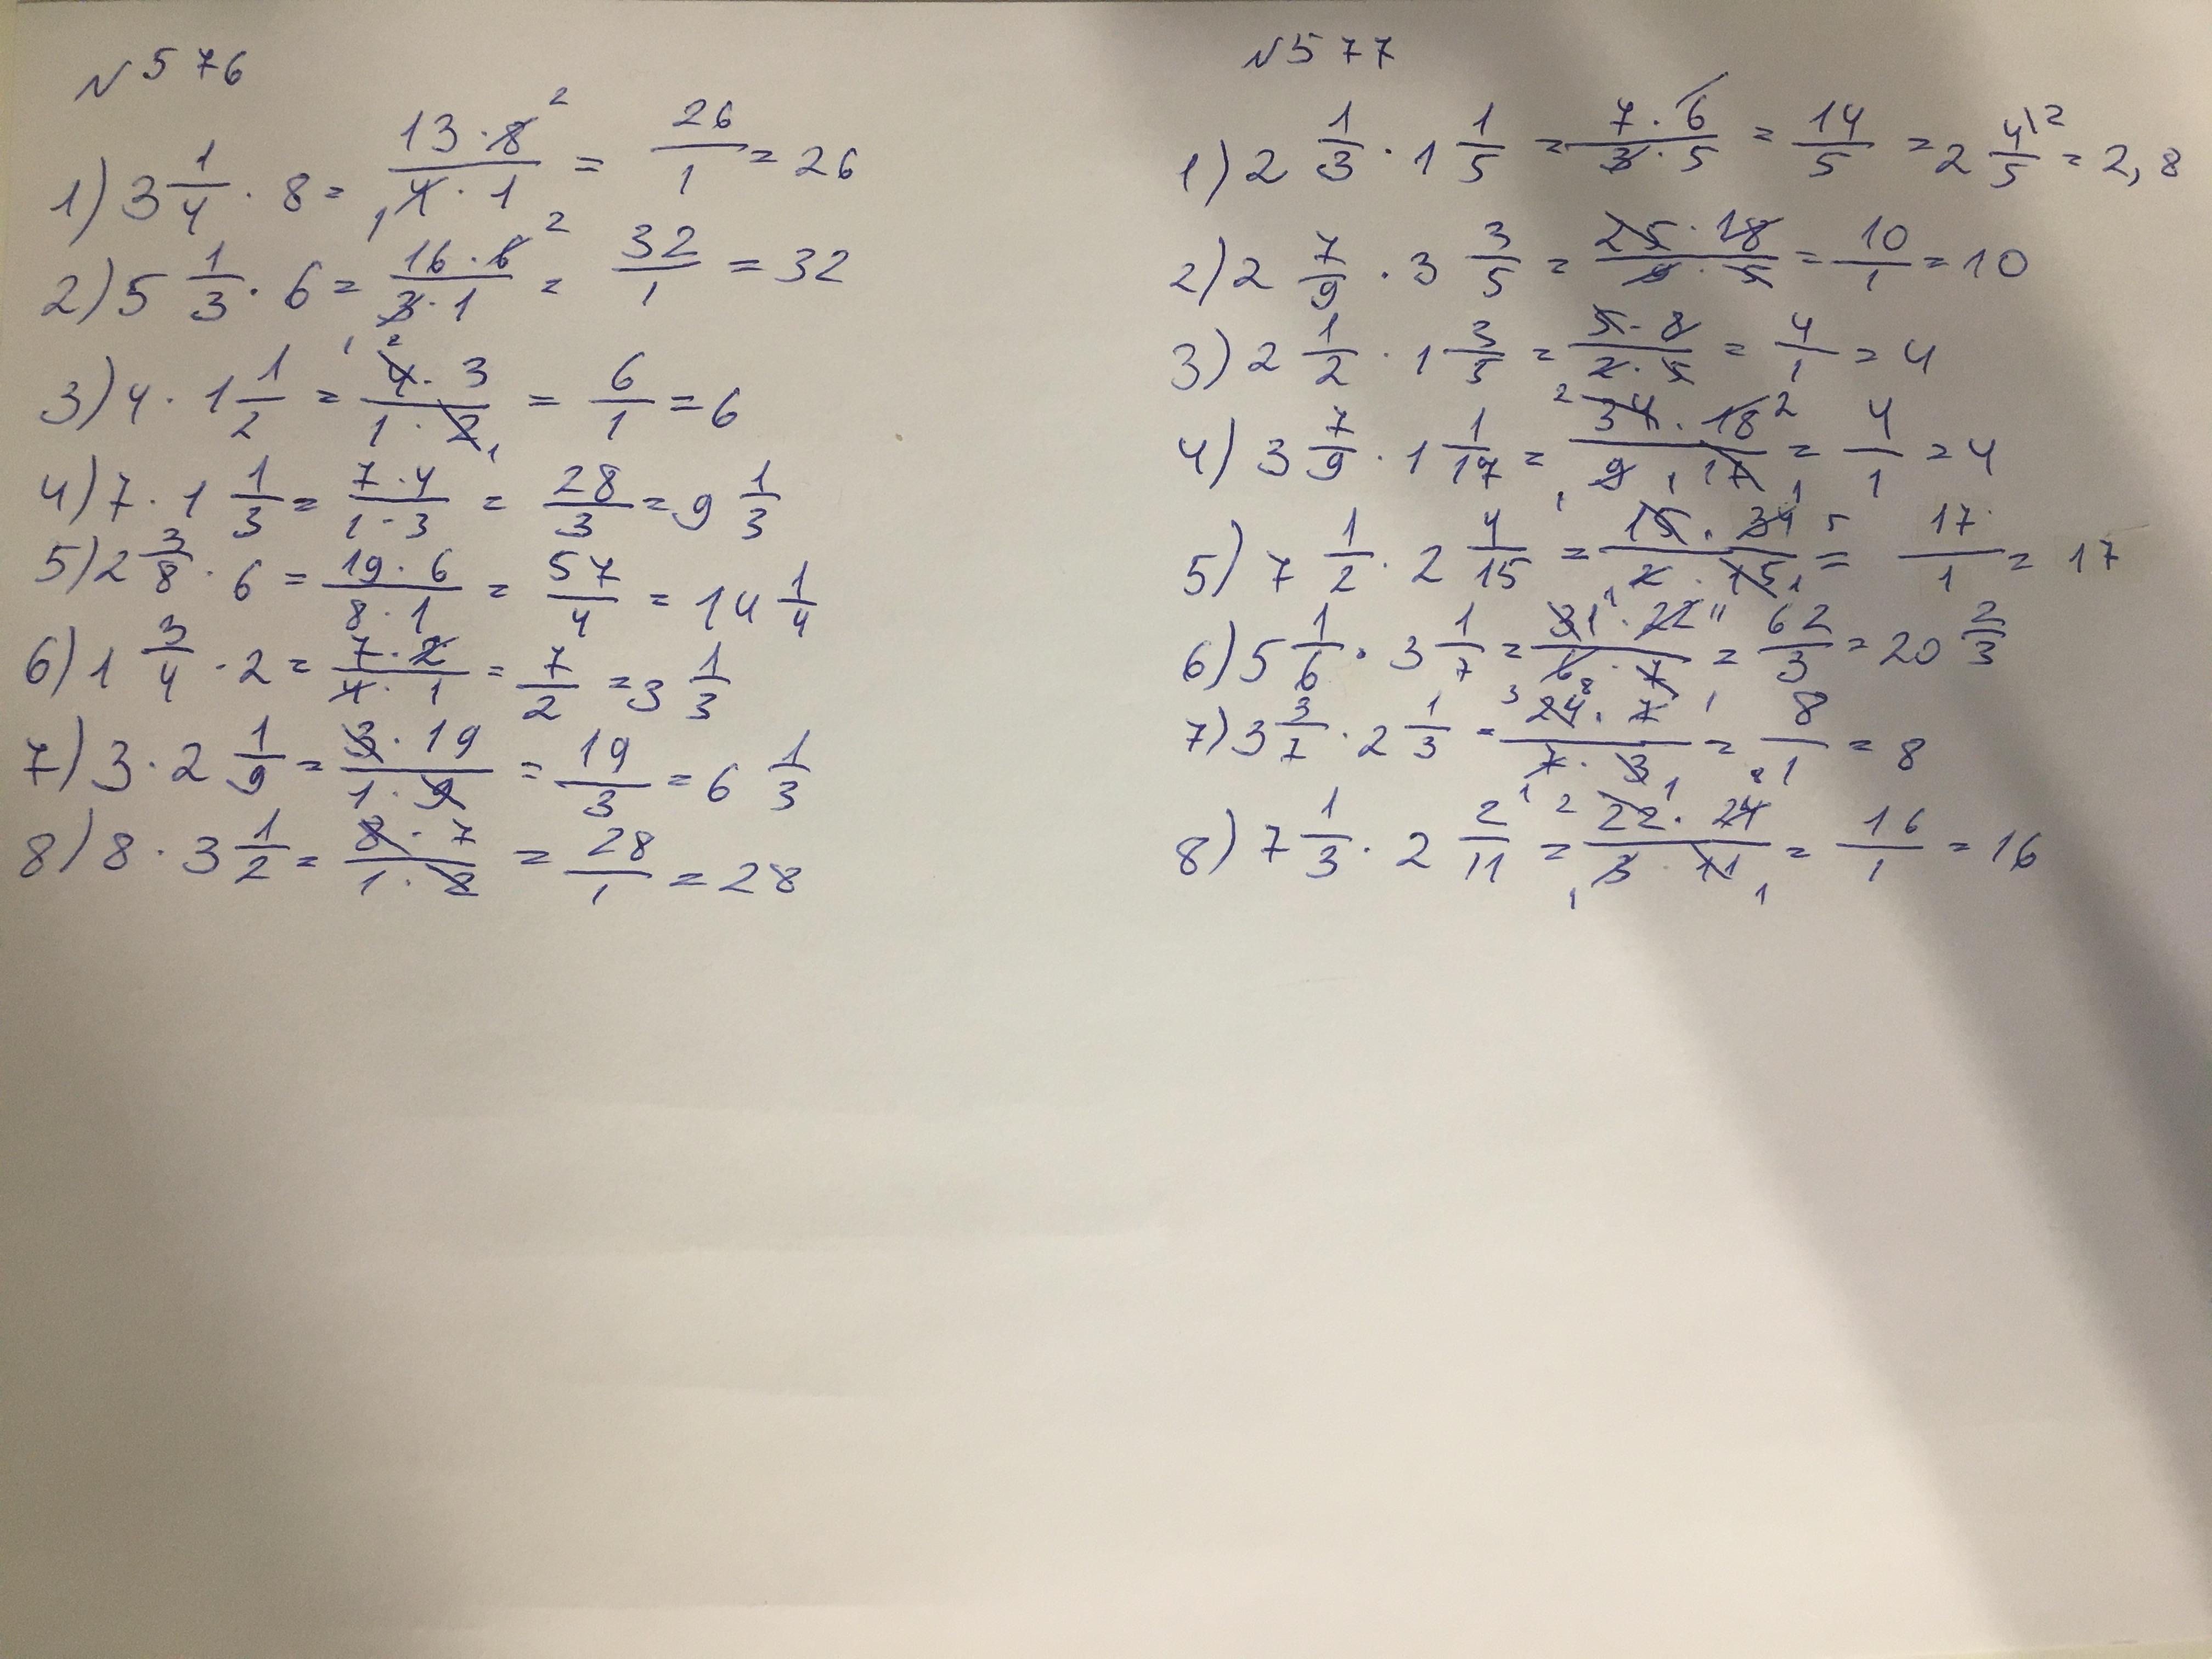 N 576
1) 3 1/4 · 8 = 13·8/4·1 = 26/1 = 26
2) 5 1/3 · 6 = 16·6/3·1 = 32/1 = 32
3) 4 · 1 1/2 = 4·3/1·2 = 6/1 = 6
4) 7 · 1 1/3 = 7·4/1·3 = 28/3 = 9 1/3
5) 2 3/8 · 6 = 19·6/8·1 = 57/4 = 14 1/4
6) 1 3/4 · 2 = 7·2/4·1 = 7/2 = 3 1/3
7) 3 · 2 1/9 = 3·19/1·9 = 19/3 = 6 1/3
8) 8 · 3 1/2 = 8·7/1·2 = 28/1 = 28
N 577
1) 2 1/3 · 1 1/5 = 7·6/3·5 = 14/5 = 2 4/5 = 2,8
2) 2 7/9 · 3 3/5 = 25·18/9·5 = 10/1 = 10
3) 2 1/2 · 1 3/5 = 5·8/2·5 = 4/1 = 4
4) 3 7/9 · 1 1/17 = 34·18/9·17 = 4/1 = 4
5) 7 1/2 · 2 4/15 = 15·34/2·15 = 17/1 = 17
6) 5 1/6 · 3 1/7 = 31·22/6·7 = 62/3 = 20 2/3
7) 3 3/7 · 2 1/3 = 24·7/7·3 = 8/1 = 8
8) 7 1/3 · 2 2/11 = 22·24/3·11 = 16/1 = 16